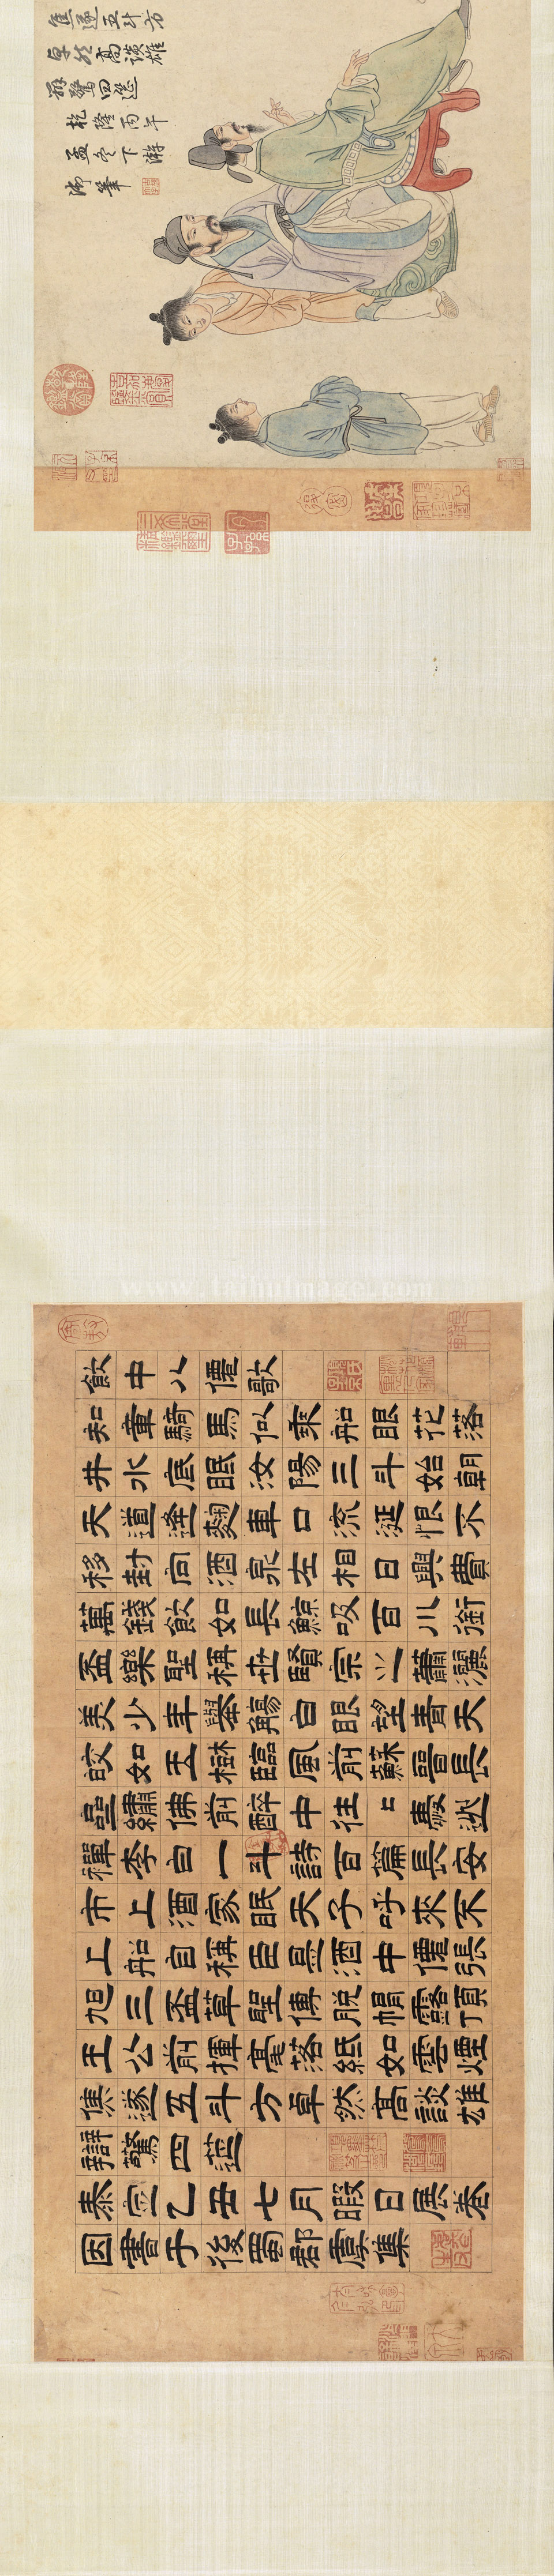 焦遂五斗方
卓然高談雄
辯驚四筵
乾隆丙午
孟冬下澣
御筆
www.taihuimage.com
飲中八僊歌
知章騎馬似乘船眼花落
井水底眠汝陽三斗始朝
天道逢麴車口流涎恨不
移封向酒泉左相日興費
萬錢飲如長鯨吸百川銜
盃樂聖稱世賢宗之蕭灑
美少年舉觴白眼望青天
皎如玉樹臨風前蘇晉長
齋繡佛前醉中往〻愛逃
禪李白一斗詩百篇長安
市上酒家眠天子呼來不
上船自稱臣是酒中僊張
旭三盃草聖傳脫帽露頂
王公前揮毫落紙如雲煙
焦遂五斗方卓然高談雄
辯驚四筵
泰定乙丑七月暇日展卷
因書于後蜀郡虞集